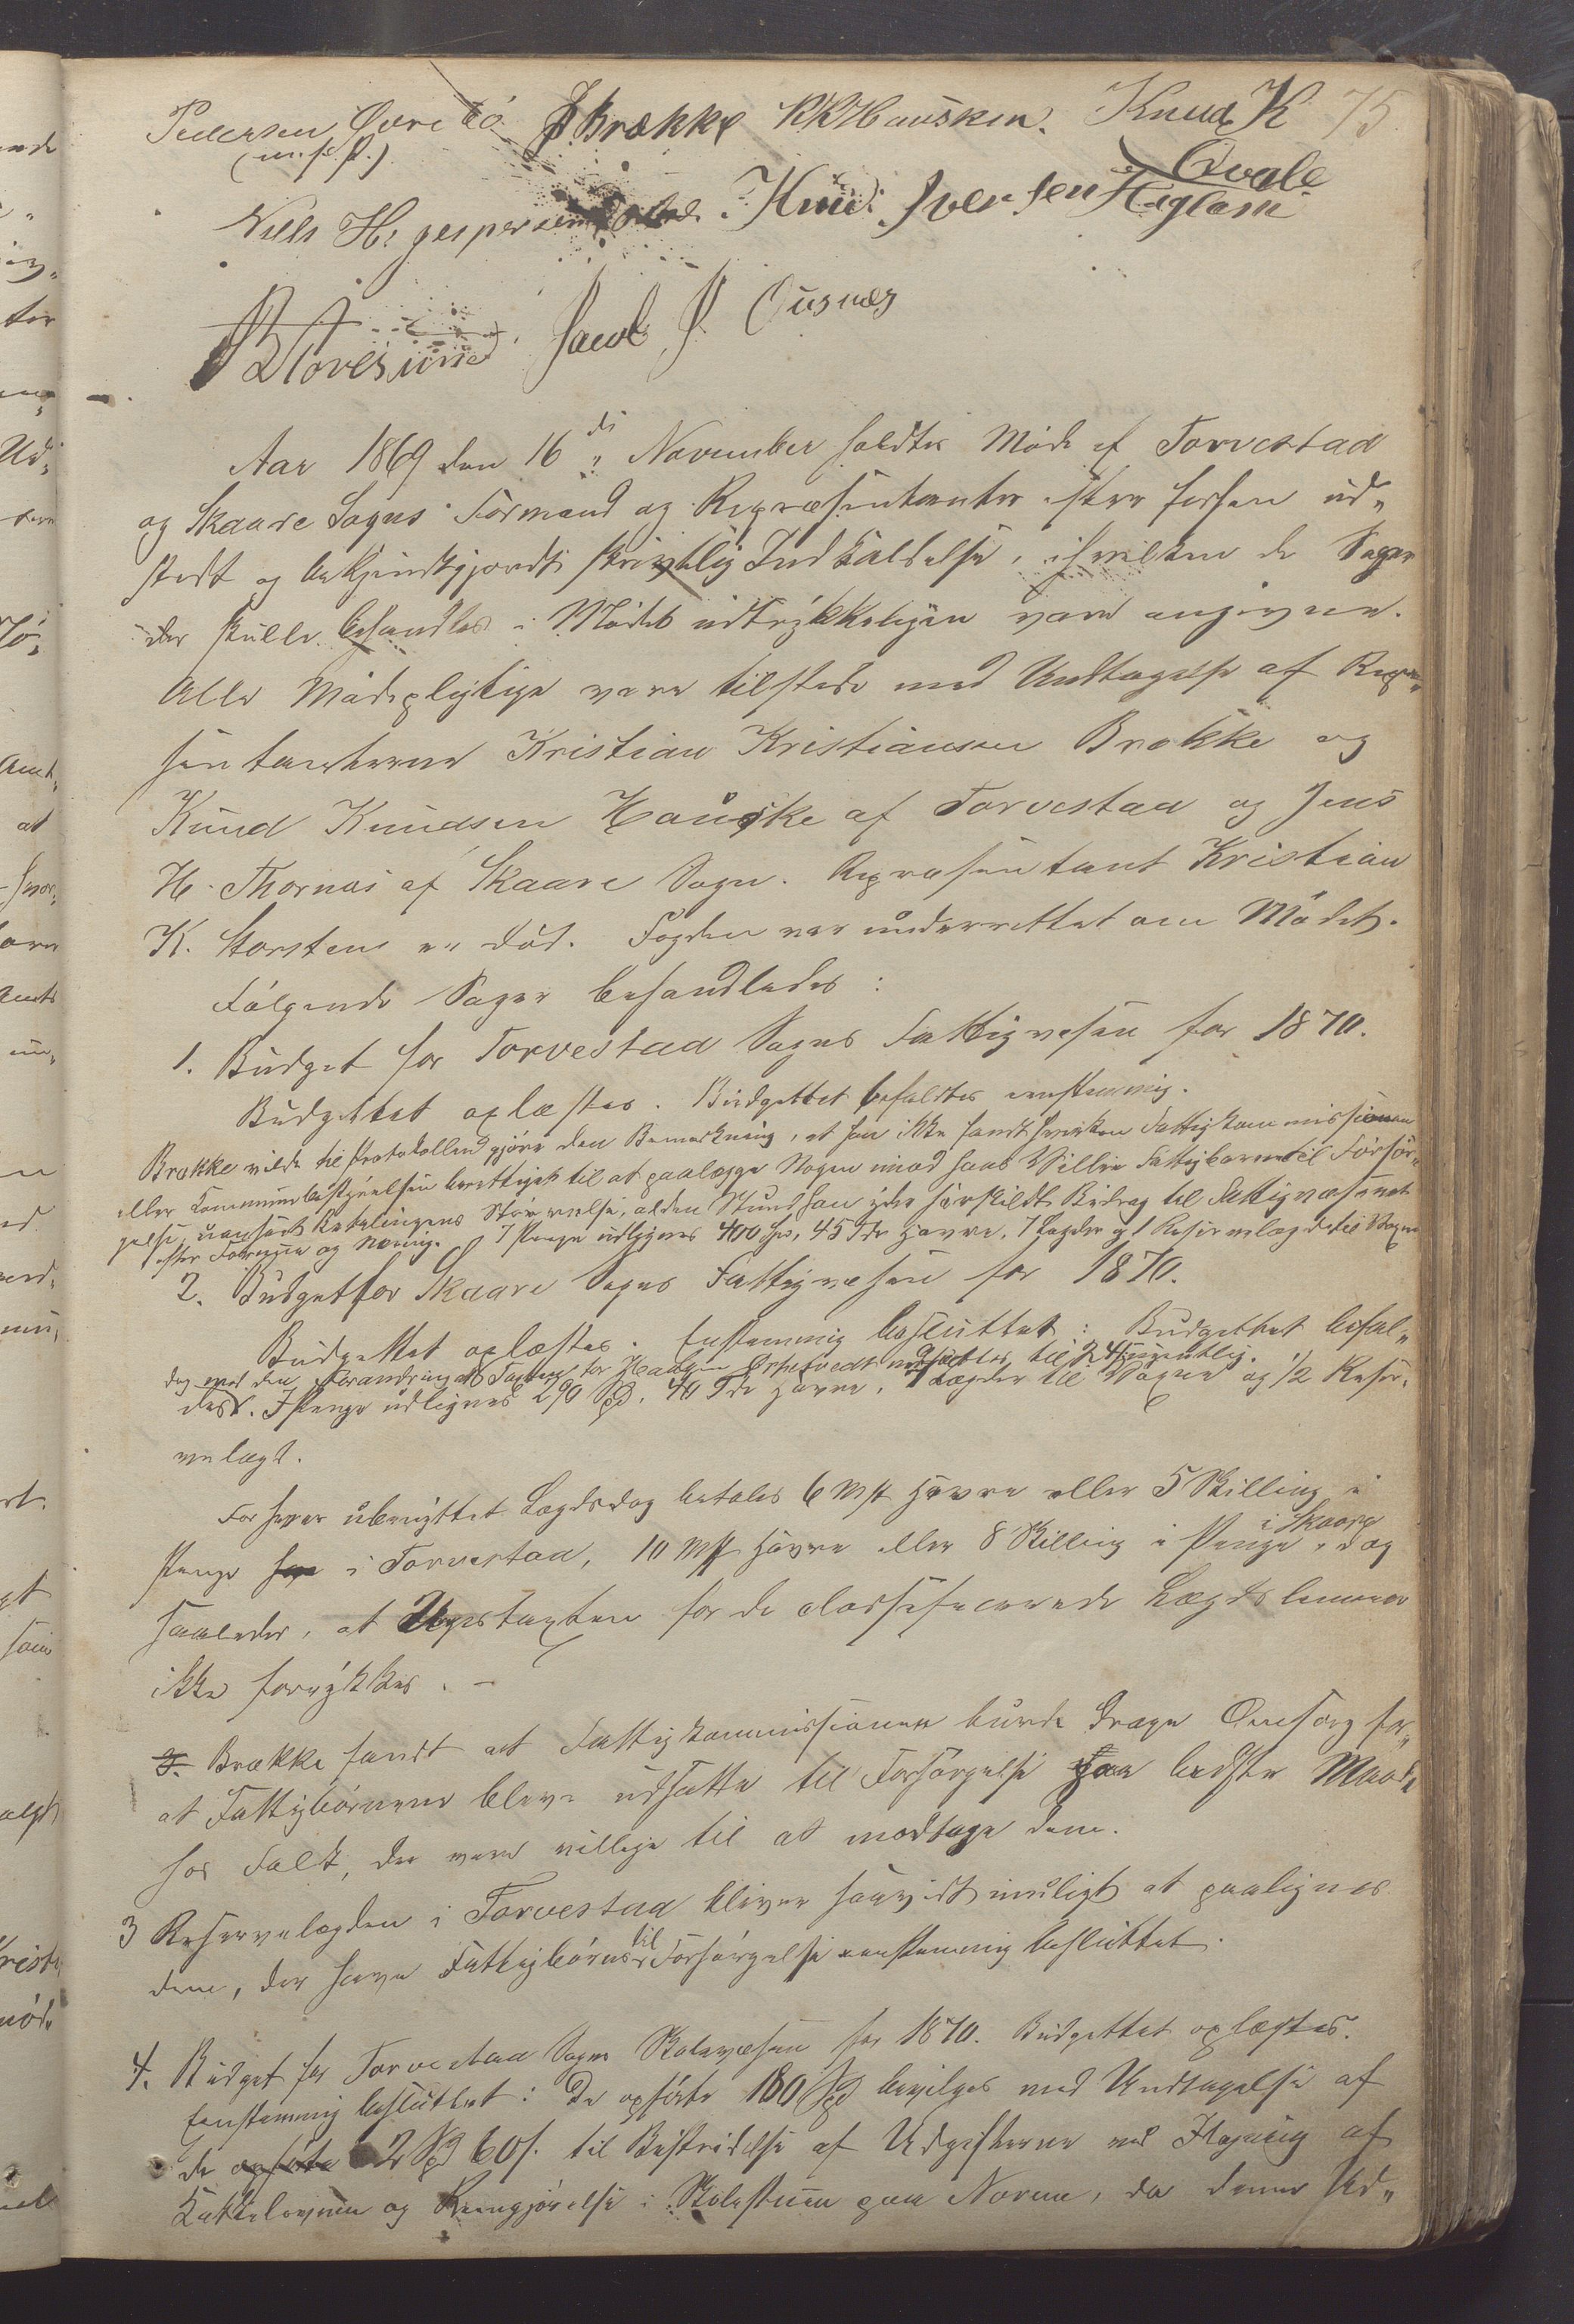 Pedersen Øvrebö J. Brække K K Hausken. Knud K 75
(m. f. P.) Qvale
Niels H. Jespersen Knud Iversen Haglam
Storesund Jacob J Ousnæs
Aar 1869 den 16de November holdtes Møde af Torvestad
og Skaare Sogns Formænd og Repræsentanter efter forhen ud-
stedt og bekjendtgjordt skriftlig Indkaldelse, i hvilken de Sager
der skulle behandles i Mødet udtrykkeligen vare angivne.
Alle Mødepligtige vare tilstede med Undtagelse af Repræ-
sentanterne Kristian Kristiansen Brække og
Knud Knudsen Hauske af Torvestad og Jens
H. Thornæs af Skaare Sogn. Repræsentant Kristian
K. Storsten er død. Fogden var underrettet om Mødet.
Følgende Sager behandledes:
1. Budget for Torvestad Sogns Fattigvæsen for 1870.
Budgettet oplæstes. Budgettet befaldtes enstemmig.
Brække vilde til Protokollen gjøre den Bemærkning, at han ikke fandt hverken Fattigkommissionen
eller Kommunebestyrelsen berettiget til at paalægge Nogen imod hans Villie Fattigbørn til Forsør-
gelse, uanseet Betalingens Størrelse, alden Stund han yder særskildt Bidrag til Fattigvæsenet
efter Formue og Næring. I Penge udlignes 400 Spd, 45 Tdr Havre, 7 Lægder og 1 Reservelægd til Vogne
2. Budget for Skaare Sogns Fattigvæsen for 1870.
Budgettet oplæstes. Enstemmig besluttet: Budgettet befal-
dog med den Forandring at Taxten for nedsættes til 24 ugentlig.
des. I Penge udlignes 290 Spd, 40 Tdr Havre, 4 Lægder til Vogne og 1/2 Reser-
velægd.
For hver ubenyttet Lægdsdag betales 6 Mk Havre eller 5 Skilling i
Penge i Torvestad, 10 Mk Havre eller 8 Skilling i Penge i Skaare, dog
saaledes, at Ugestaxten for de classificerede Lægdslemmer
ikke forrykkes. –
3. Brække fandt at Fattigkommissionen burde drage Omsorg for,
at Fattigbørnene bleve udsatte til Forsørgelse paa bedste Maade
hos Folk, der vare villige til at modtage dem.
3 Reservelægden i Torvestad bliver saavidt muligt at paalignes
dem, der have Fattigbørn til Forsørgelse enstemmig besluttet.
4. Budget for Torvestad Sogns Skolevæsen for 1870. Budgettet oplæstes.
Enstemmig besluttet: De opførte 180 Spd bevilges med Undtagelse af
de opførte 2 Spd 60 s. til Bestridelse af Udgifterne ved af
Kakkelovnen og Rengjørelse i Skolestuen paa Norum, da denne Ud-